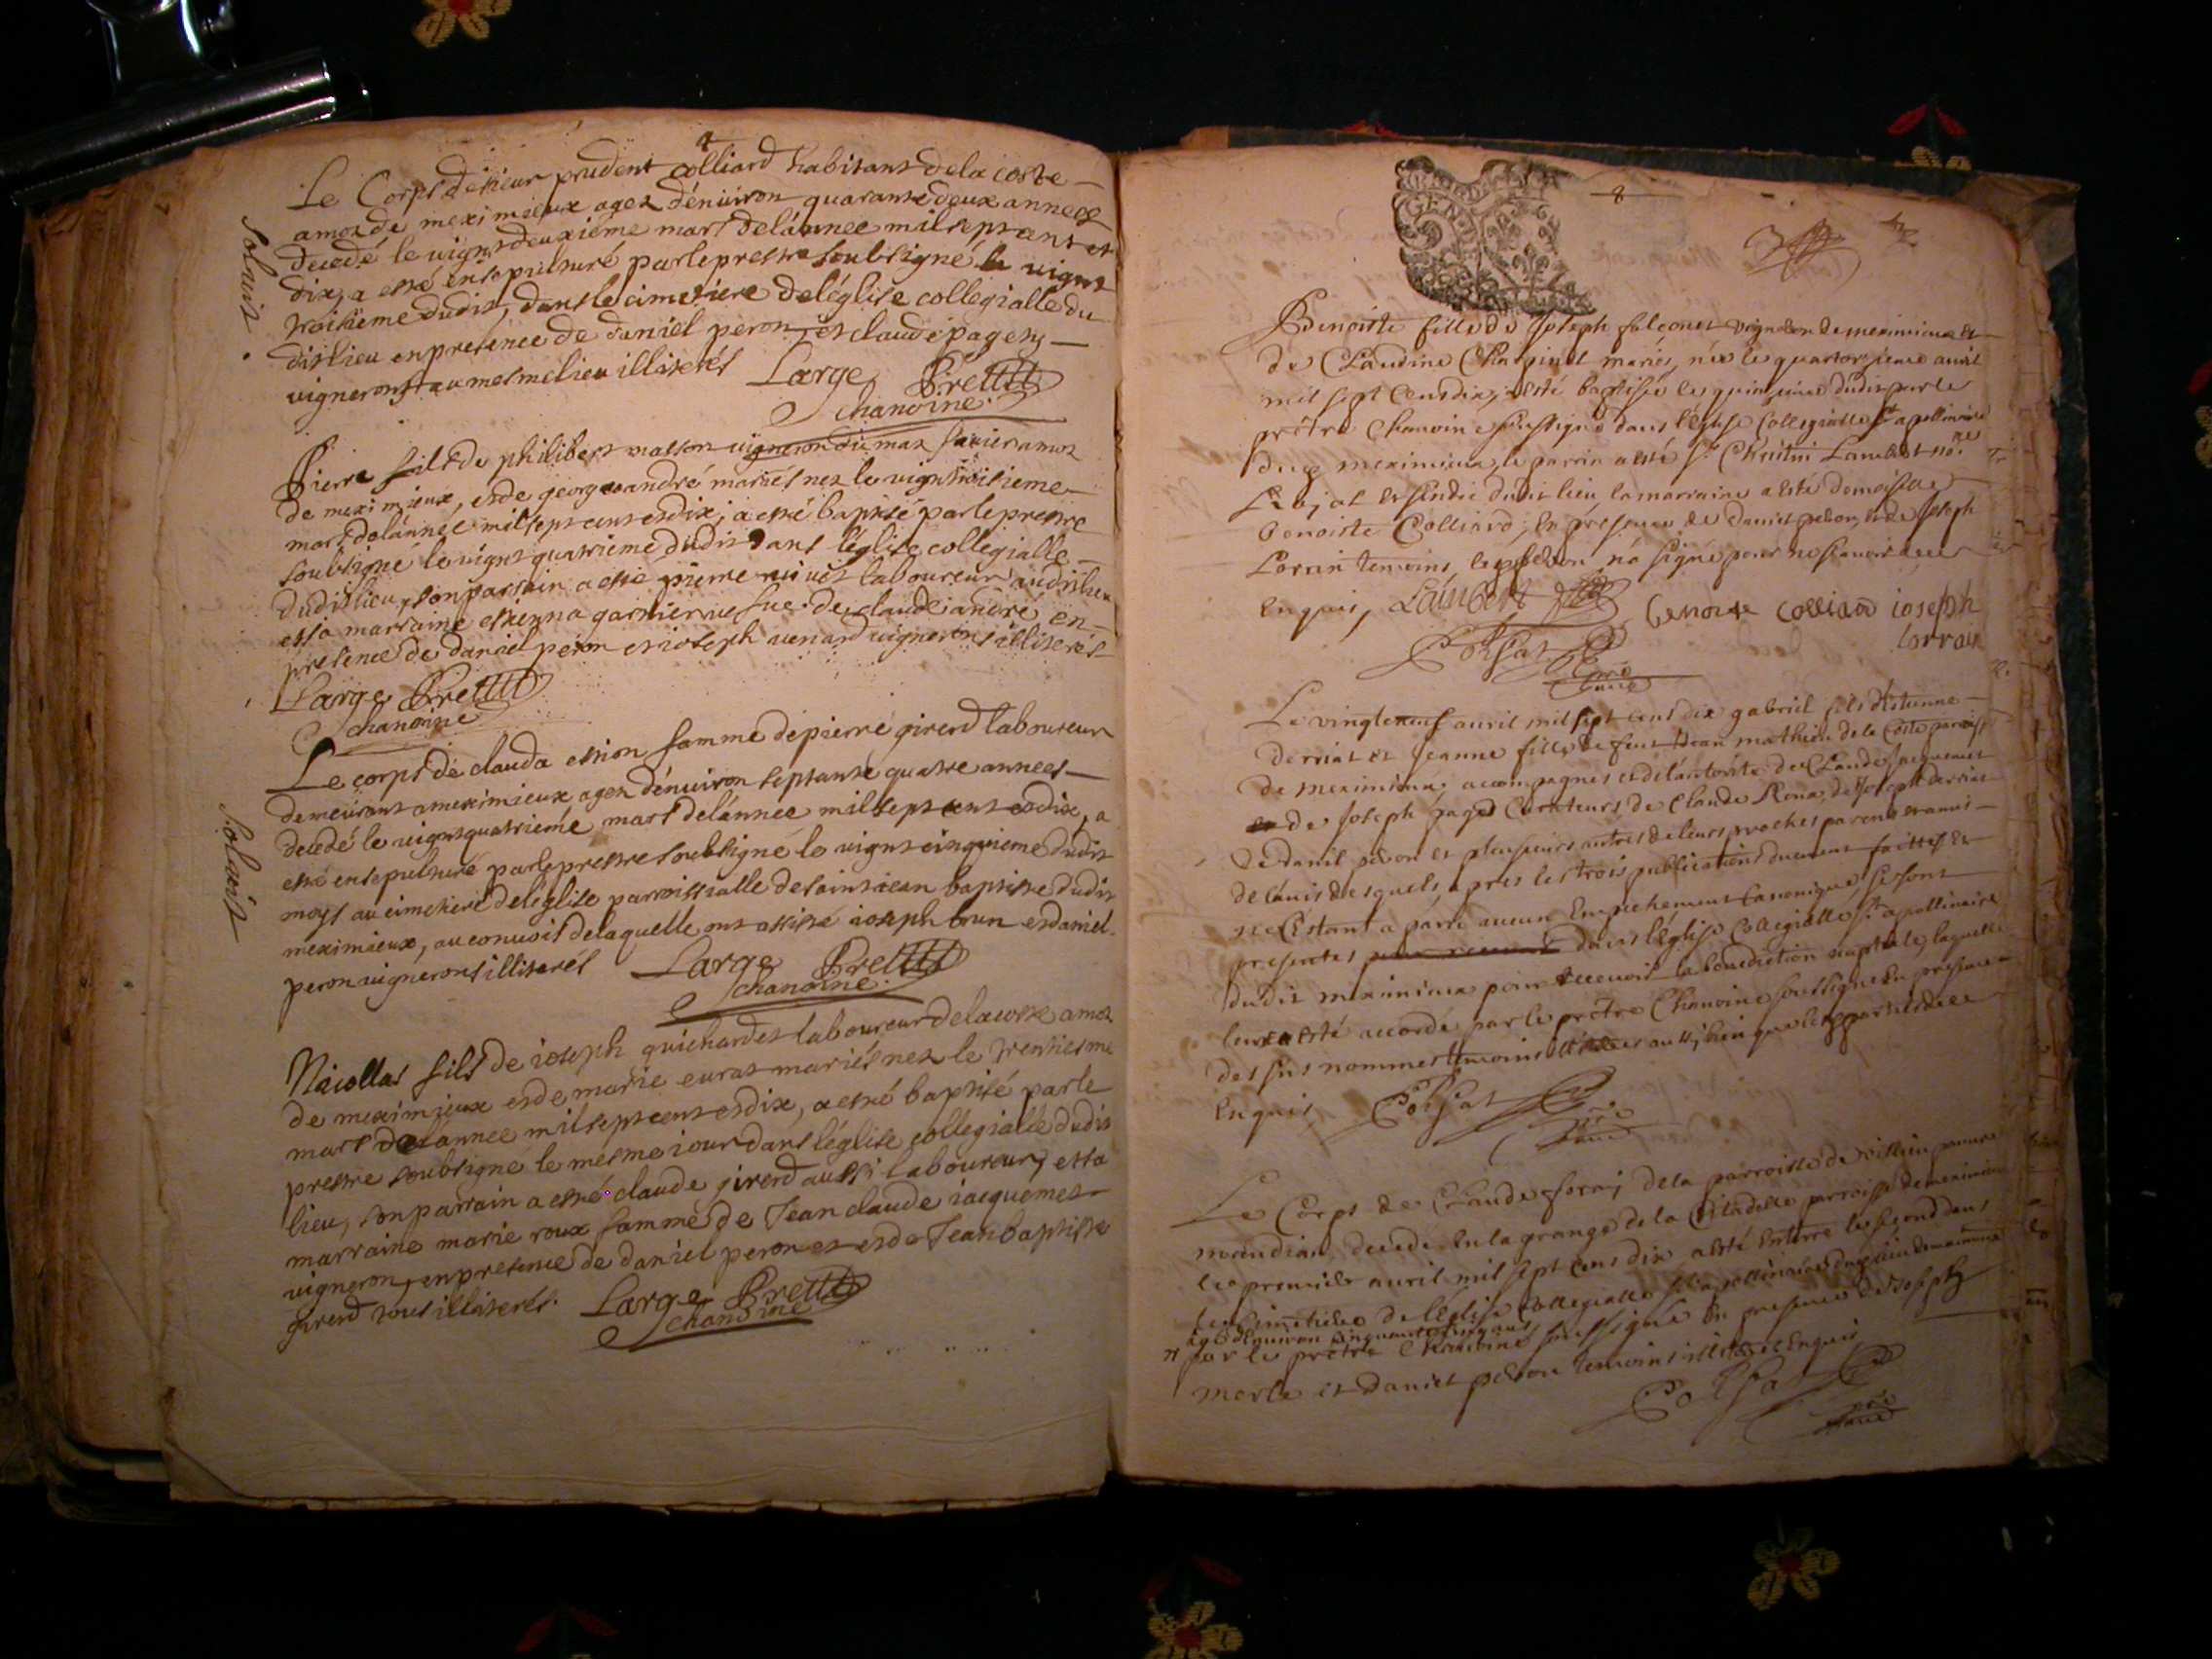 4
Le Corps de sieur prudent colliard habitant de la coste
amoz de meximieux agez dénuiron quarante deux annees
decedé le uignt deuxiéme mars de lánnee mil sept cent et
dix, a esté ensepulturé par le prestre soubsigné le uignt
troisiéme dudit, dans le cimetiere de léglise collegialle du
dit lieu en presence de daniel peron, et claude pagety
uignerons au mesme lieu illiterés Large Bre
chanoine
solvit
Pierre fils de philibert masson uigneron du mas amoz
de meximieux, et de george andré mariés nez le uignt troisieme
mars de lánnee mil sept cent et dix, a esté baptisé par le prestre
soubsigné le uignt quatriéme dudit dans léglise collegialle
dudit lieu, son parrain a esté pierre laboureur audit lieu
et sa marraine estienna garnier uefue de claude andré en
presence de daniel peron et ioseph uenard uignerons illiterés
Large Bre
chanoine
Le corps de clauda femme de pierre girerd laboureur
demeurant a meximieux agez dénuiron septante quatre annees
decedé le uignt quatriéme mars de lánnee mil sept cent et dix, a
esté ensepulturé par le prestre soubsigné le uignt cinquieme dudit
moys au cimetiere de léglise parroissialle de saint iean baptiste dudit
meximieux, au conuoit de laquelle ont assisté ioseph brun et daniel
peron uignerons illiterés Large Bre
chanoine
solvit
Nicollas fils de ioseph guichardet laboureur de la coste amoz
de meximieux et de marie euras mariés nez le trentiesme
mars de lánnee mil sept cent et dix, a esté baptisé par le
prestre soubsigné le mesme iour dans léglise collegialle dudit
lieu, son parrain a esté claude girerd aussi laboureur, et sa
marraine marie roux femme de Jean claude iacquemet
uigneron, en presence de daniel peron et de Jean baptiste
girerd tous illiterés. Large Bre
chanoine
8
GEN
Benoiste fille de Joseph falconet vigneron de meximieux et
de Claudine mariés, née le quatorzieme auril
mil sept cens dix, a esté baptisée le quinzieme dudit par le
prêtre Chanoine soussigné dans l'église Collegialle St apollinaire
dudt meximieux, le parrain a esté Sr Lambert nore
Royal et sindic dudit lieu, la marraine a esté demoiselle
benoiste Colliard, en presence de daniel peron, et de Joseph
Lorrin temoins, led peron n'a signé pour ne scauoir de ce
enquis, Lambert benoiste colliard ioseph
lorrain
Le vingtneuf auril mil sept cens dix gabriel fils d'Estienne
derriat et Jeanne fille de feut Jean mathieu de la Coste parroisse
de meximieux, accompagnés et de l'autorité de Claude Jacquemet
et de Joseph pages Curateurs, de Claude Roux, de Joseph derriat
de daniel peron et plusieurs autres de leurs proches parens et amis
de l'auis desquels, apres les trois publications duement faittes et
ne s'estant a parré aucun empechement Canonique, se sont
presentés dans l'église Collegialle St apollinaire
dudit meximieux pour receuoir la benediction nuptiale, laquelle
leur a esté accordé par le prêtre Chanoine soussigné en presence
des sus nommes temoins illiterés aussi bien que les parties de ce
enquis
Le Corps de Claude foray de la parroisse de villieu pauure
mendiant decedé en la grange de la Citadelle parroisse de meximieux
le premier auril mil sept cens dix a esté enterré le second dans
le Cimetiere de l'église Collegialle St apollinaire dudit lieu de meximieux
agé d'enuiron cinquante cinq ans
par le prêtre Chanoine soussigné en presence de Joseph
merle et daniel peron temoins illiterés enquis